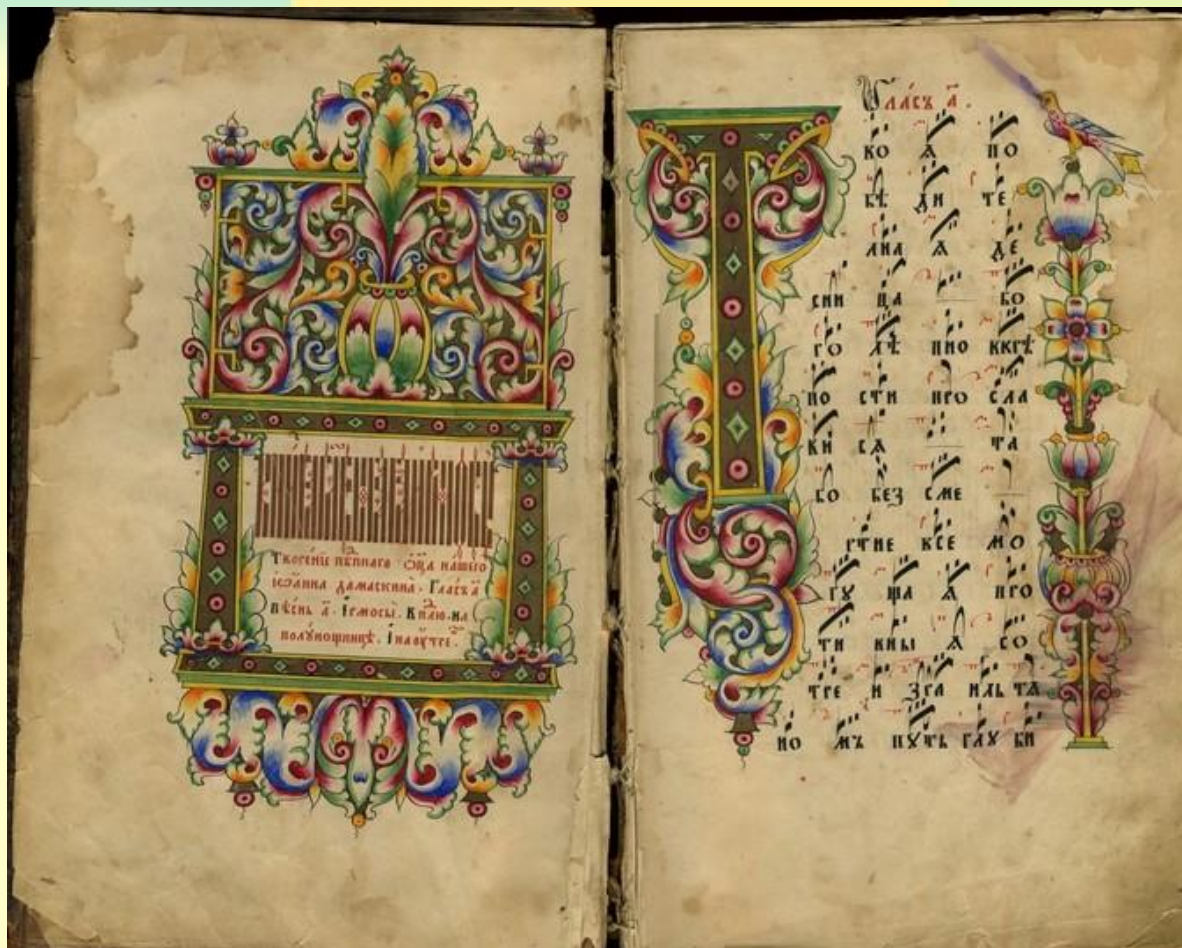 Творенїе пⷣбнаго ѻ҆ц҃а нашего
іѡанна дамаскина. Гласъ а҃
пѣснь а҃. Ірмосы. В нлⷣю. на
полꙋнощницѣ. І на оутре.
Гласъ а҃.
Т во ѧ по
бѣ ди те
лна ѧ де
сни ца бо
го лѣ пно вкрѣ
по сти про сла
ви сѧ та
бо без сме
ртие все мо
гꙋ ща ѧ про
ти вны ѧ со
тре и зра иль тѧ
но мъ пꙋть глꙋ би